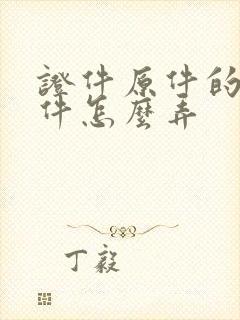 證件原件的
件怎麼弄
丁毅